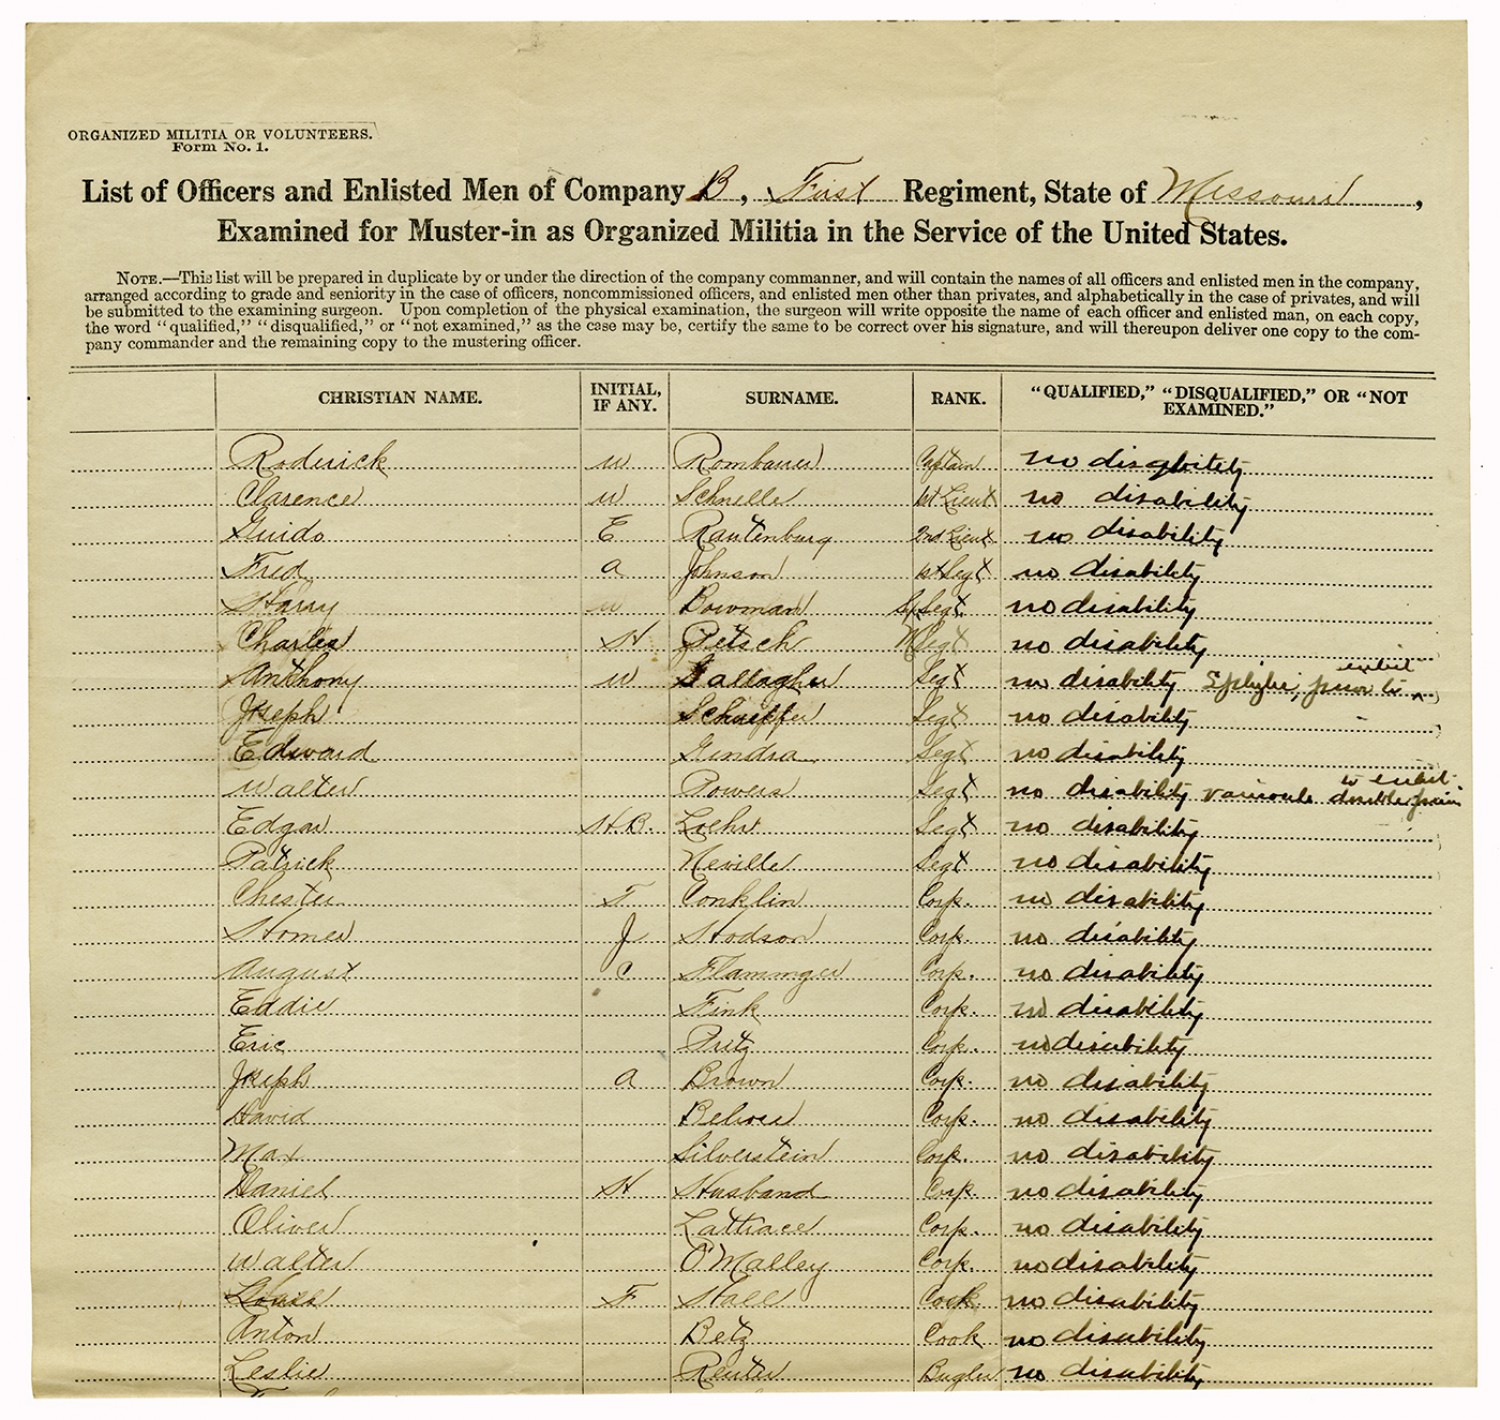 ORGANIZED MILITIA OR VOLUNTEERS.
Form No. 1.
List of Officers and Enlisted Men of Company B, First Regiment, State of Missouri,
Examined for Muster-in as Organized Militia in the Service of the United States.
NOTE.—This list will be prepared in duplicate by or under the direction of the company commanner, and will contain the names of all officers and enlisted men in the company,
arranged according to grade and seniority in the case of officers, noncommissioned officers, and enlisted men other than privates, and alphabetically in the case of privates, and will
be submitted to the examining surgeon. Upon completion of the physical examination, the surgeon will write opposite the name of each officer and enlisted man, on each copy,
the word "qualified," "disqualified," or "not examined," as the case may be, certify the same to be correct over his signature, and will thereupon deliver one copy to the com-
pany commander and the remaining copy to the mustering officer.
CHRISTIAN NAME. INITIAL, IF ANY. SURNAME. RANK. "QUALIFIED," "DISQUALIFIED," OR "NOT EXAMINED."
Roderick W Rombauer Captain no disability
Clarence W Schnelle 1st Lieut no disability
Guido E Rautenburg 2nd Lieut no disability
Fred A Johnson 1st Segt no disability
Harry W Bowman Segt no disability
Charles H Pietsch Segt no disability
Anthony W Gallagher Segt no disability prior to
Joseph Schaeffer Segt no disability
Edward Gindra Segt no disability
Walter Powers Segt no disability
Edgar H.B. Loehr Segt no disability
Patrick Neville Segt no disability
Chester F Conklin Corp. no disability
Homer J Hodson Corp. no disability
August C Flamminger Corp. no disability
Eddie Fink Corp. no disability
Eric Pritz Corp. no disability
Joseph A Brown Corp. no disability
David Corp. no disability
Max Silverstein Corp. no disability
Daniel H Husband Corp. no disability
Oliver Lattrace Corp. no disability
Walter O'Malley Corp. no disability
Louis F Hall Cook no disability
Anton Betz Cook no disability
Leslie Reuter Bugler no disability